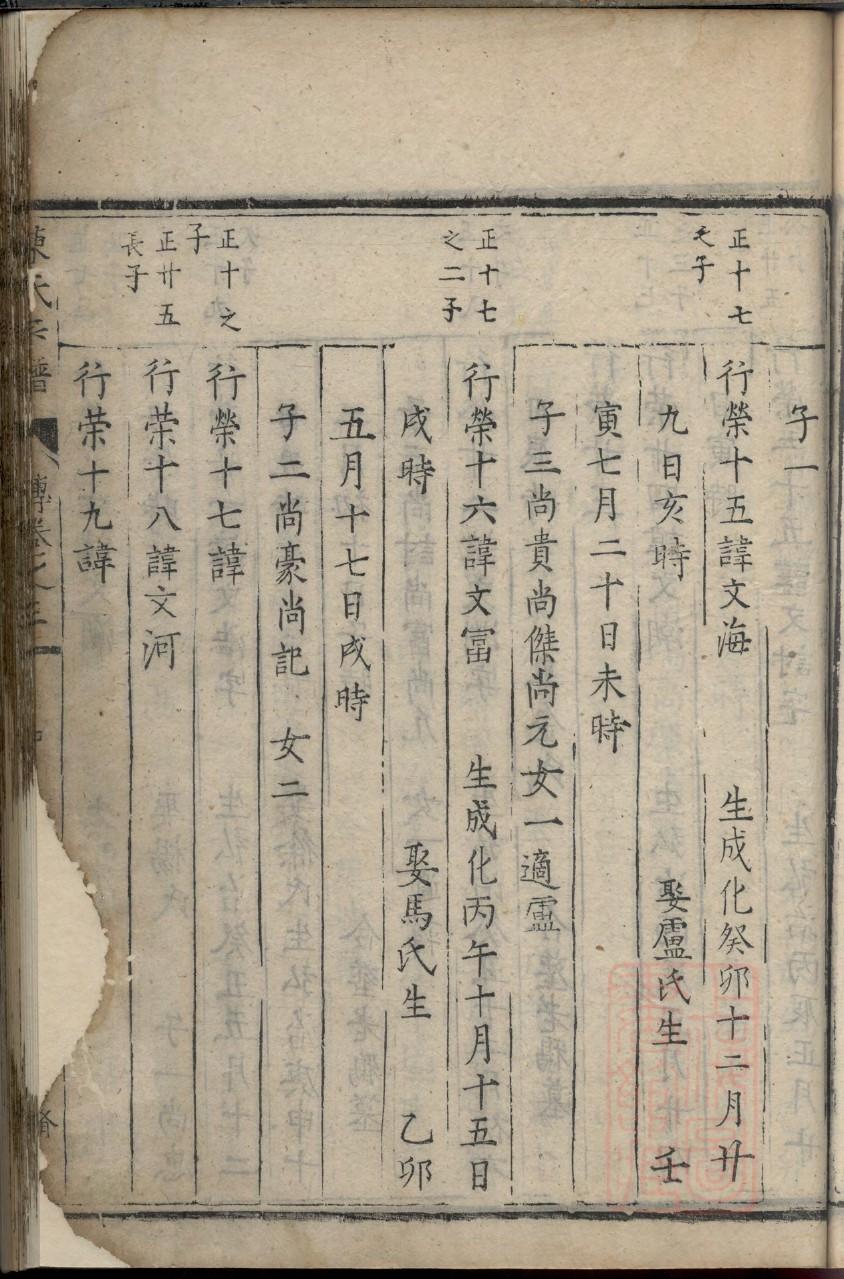 子一
正十七
之子
行榮十五諱文海 生成化癸卯十二月廿
九日亥時 娶盧氏生 壬
寅七月二十日未時
子三尚貴尚傑尚元女一適盧
正十七
之二子
行榮十六諱文富 生成化丙午十月十五日
戌時 娶馬氏生 乙卯
五月十七日戌時
子二尚豪尚記 女二
正十之
子
行榮十七諱
正廿五
長子
行荣十八諱文河
行荣十九諱
陳氏宗譜 傳卷之三